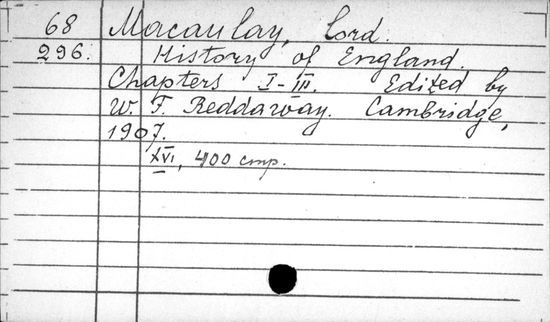 68 Macaulay, Lord.
296. History of England.
Chapters I-III. Edited by
W. F. Reddaway. Cambridge,
1907.
XVI, 400 стр.